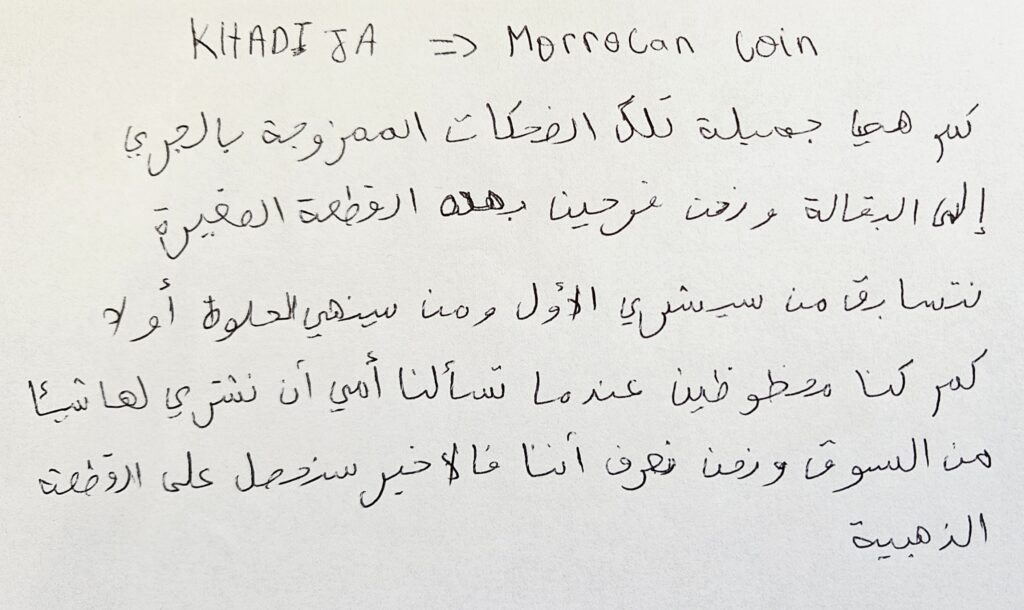 KHADIJA => Morrocan coin
كم هيا جميلة تلك الضحكات الممزوجة بالجري
إلى البقالة ونحن فرحين بهذه القطعة الصغيرة
نتسابق من سيشري الأول ومن سينهي الحلوة أولا
كم كنا محظوظين عندما تسألنا أمي أن نشتري لها شيئا
من السوق ونحن نعرف أننا فالاخير سنحصل على القطعة
الذهبية